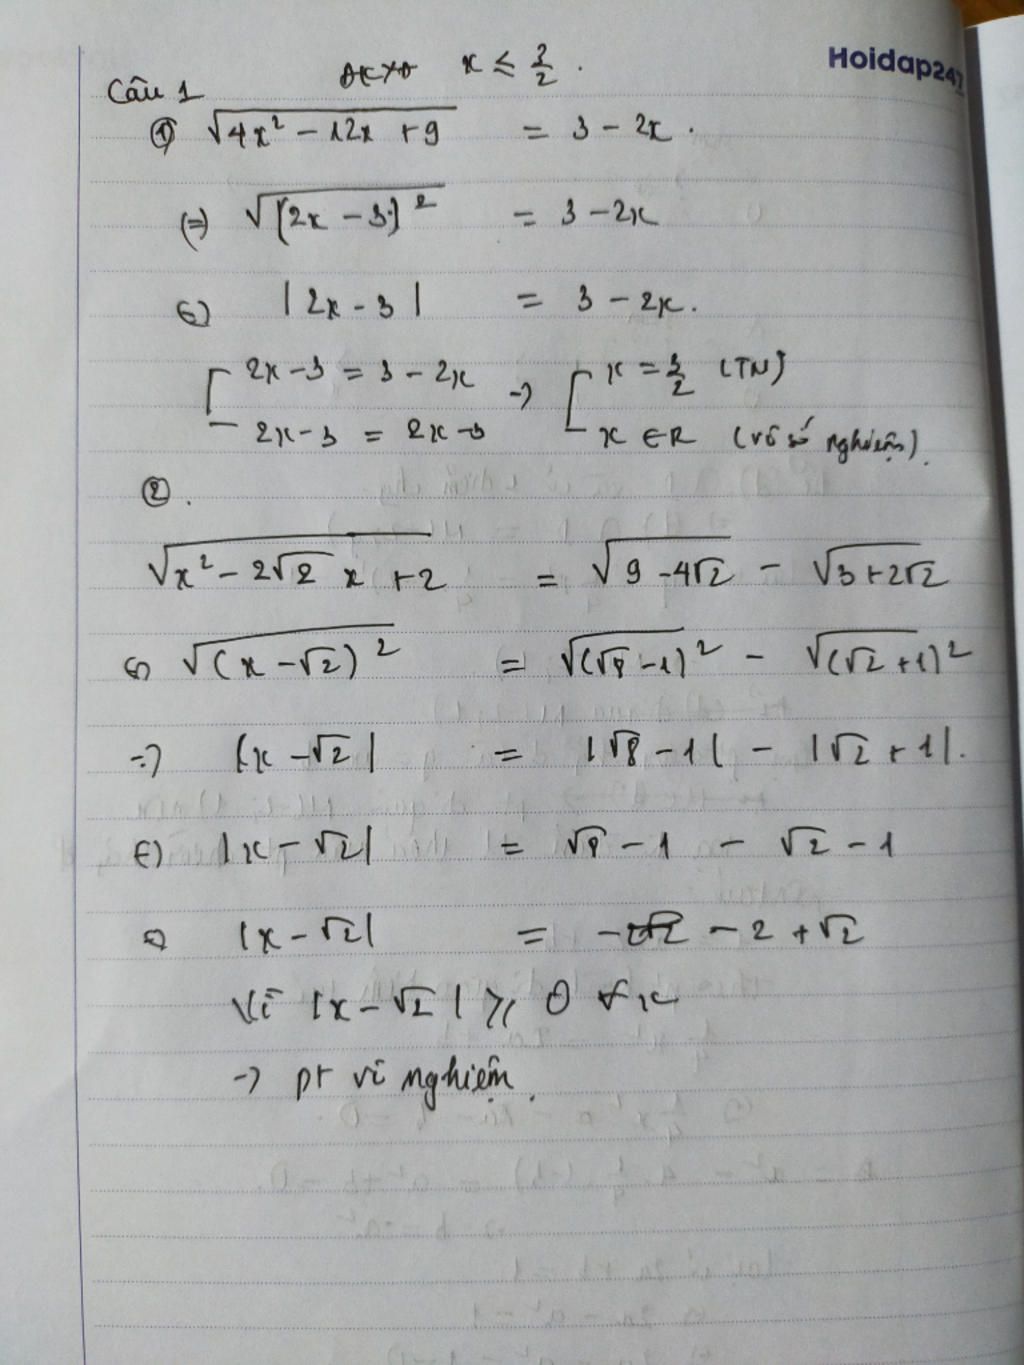 Hoidap247
Câu 1 x ≤ 3/2 .
① √(4x² - 12x + 9) = 3 - 2x .
(=) √((2x - 3)²) = 3 - 2x
|2x - 3| = 3 - 2x.
[ 2x - 3 = 3 - 2x → [ x = 3/2 (TN)
2x - 3 = 2x - 3 x ∈ R (vô số nghiệm).
② .
√(x² - 2√2 x + 2) = √(9 - 4√2) - √(3 + 2√2)
√((x - √2)²) = √((√8 - 1)²) - √((√2 + 1)²)
|x - √2| = |√8 - 1| - |√2 + 1|.
|x - √2| = √8 - 1 - √2 - 1
|x - √2| = - 2 + √2
Vì |x - √2| ≥ 0 ∀x
→ pt vô nghiệm.